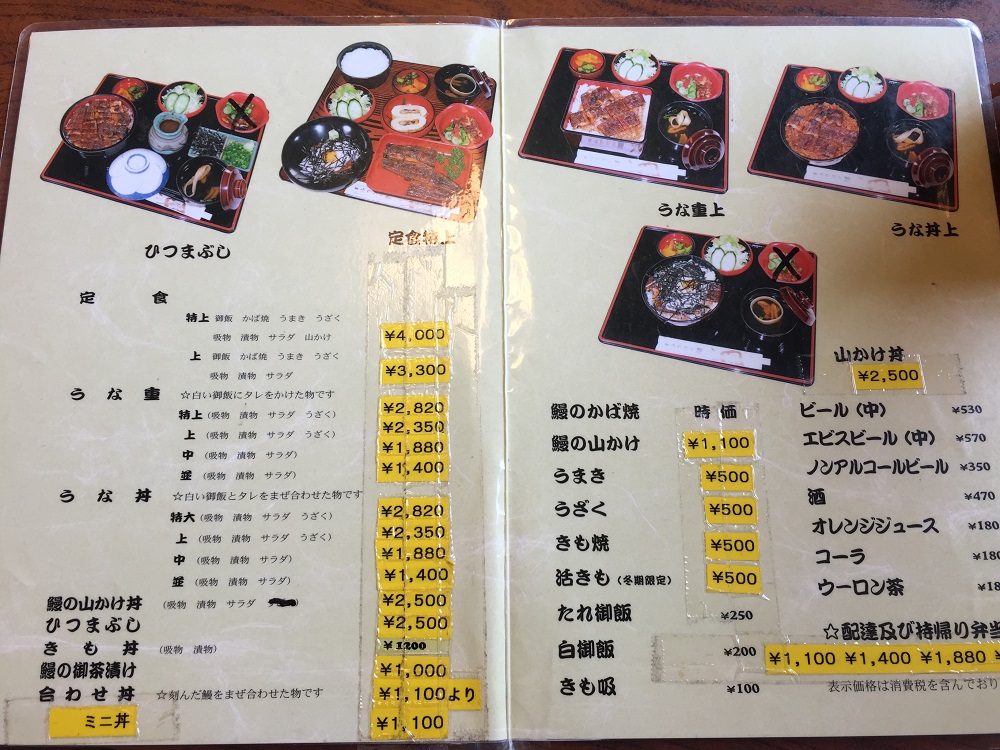 ひつまぶし
定食特上
定食
特上 御飯 かば焼 うまき うざく
吸物 漬物 サラダ 山かけ
¥4,000
上 御飯 かば焼 うまき うざく
吸物 漬物 サラダ
¥3,300
うな重 ☆白い御飯にタレをかけた物です
特上(吸物 漬物 サラダ うざく) ¥2,820
上 (吸物 漬物 サラダ うざく) ¥2,350
中 (吸物 漬物 サラダ) ¥1,880
並 (吸物 漬物 サラダ) ¥1,400
うな丼 ☆白い御飯とタレをまぜ合わせた物です
特大(吸物 漬物 サラダ うざく) ¥2,820
上 (吸物 漬物 サラダ うざく) ¥2,350
中 (吸物 漬物 サラダ) ¥1,880
並 (吸物 漬物 サラダ) ¥1,400
鰻の山かけ丼 (吸物 漬物 サラダ ¥2,500
ひつまぶし ¥2,500
きも丼 (吸物 漬物) ¥1200
鰻の御茶漬け ¥1,000
合わせ丼 ☆刻んだ鰻をまぜ合わせた物です ¥1,100より
ミニ丼 ¥1,100
うな重上
うな丼上
山かけ丼
¥2,500
鰻のかば焼 時価
鰻の山かけ ¥1,100
うまき ¥500
うざく ¥500
きも焼 ¥500
活きも(冬期限定) ¥500
たれ御飯 ¥250
白御飯 ¥200
きも吸 ¥100
ビール(中) ¥530
エビスビール(中) ¥570
ノンアルコールビール ¥350
酒 ¥470
オレンジジュース ¥180
コーラ ¥180
ウーロン茶 ¥18
☆配達及び持帰り弁当
¥1,100 ¥1,400 ¥1,880 ¥
表示価格は消費税を含んでおり